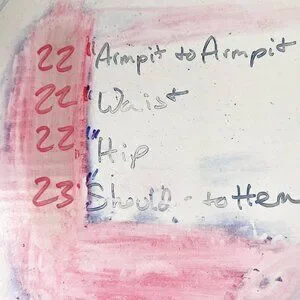 22" Armpit to Armpit
22" Waist
22" Hip
23 Should - to Hem